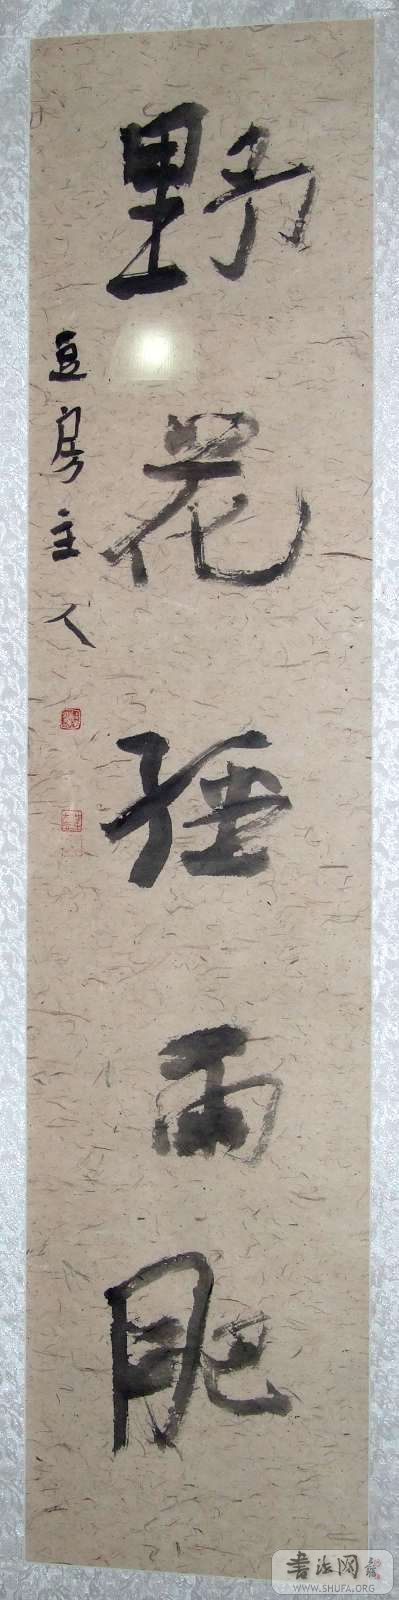 野花经雨肥
豆房主人
书法网
WWW.SHUFA.ORG